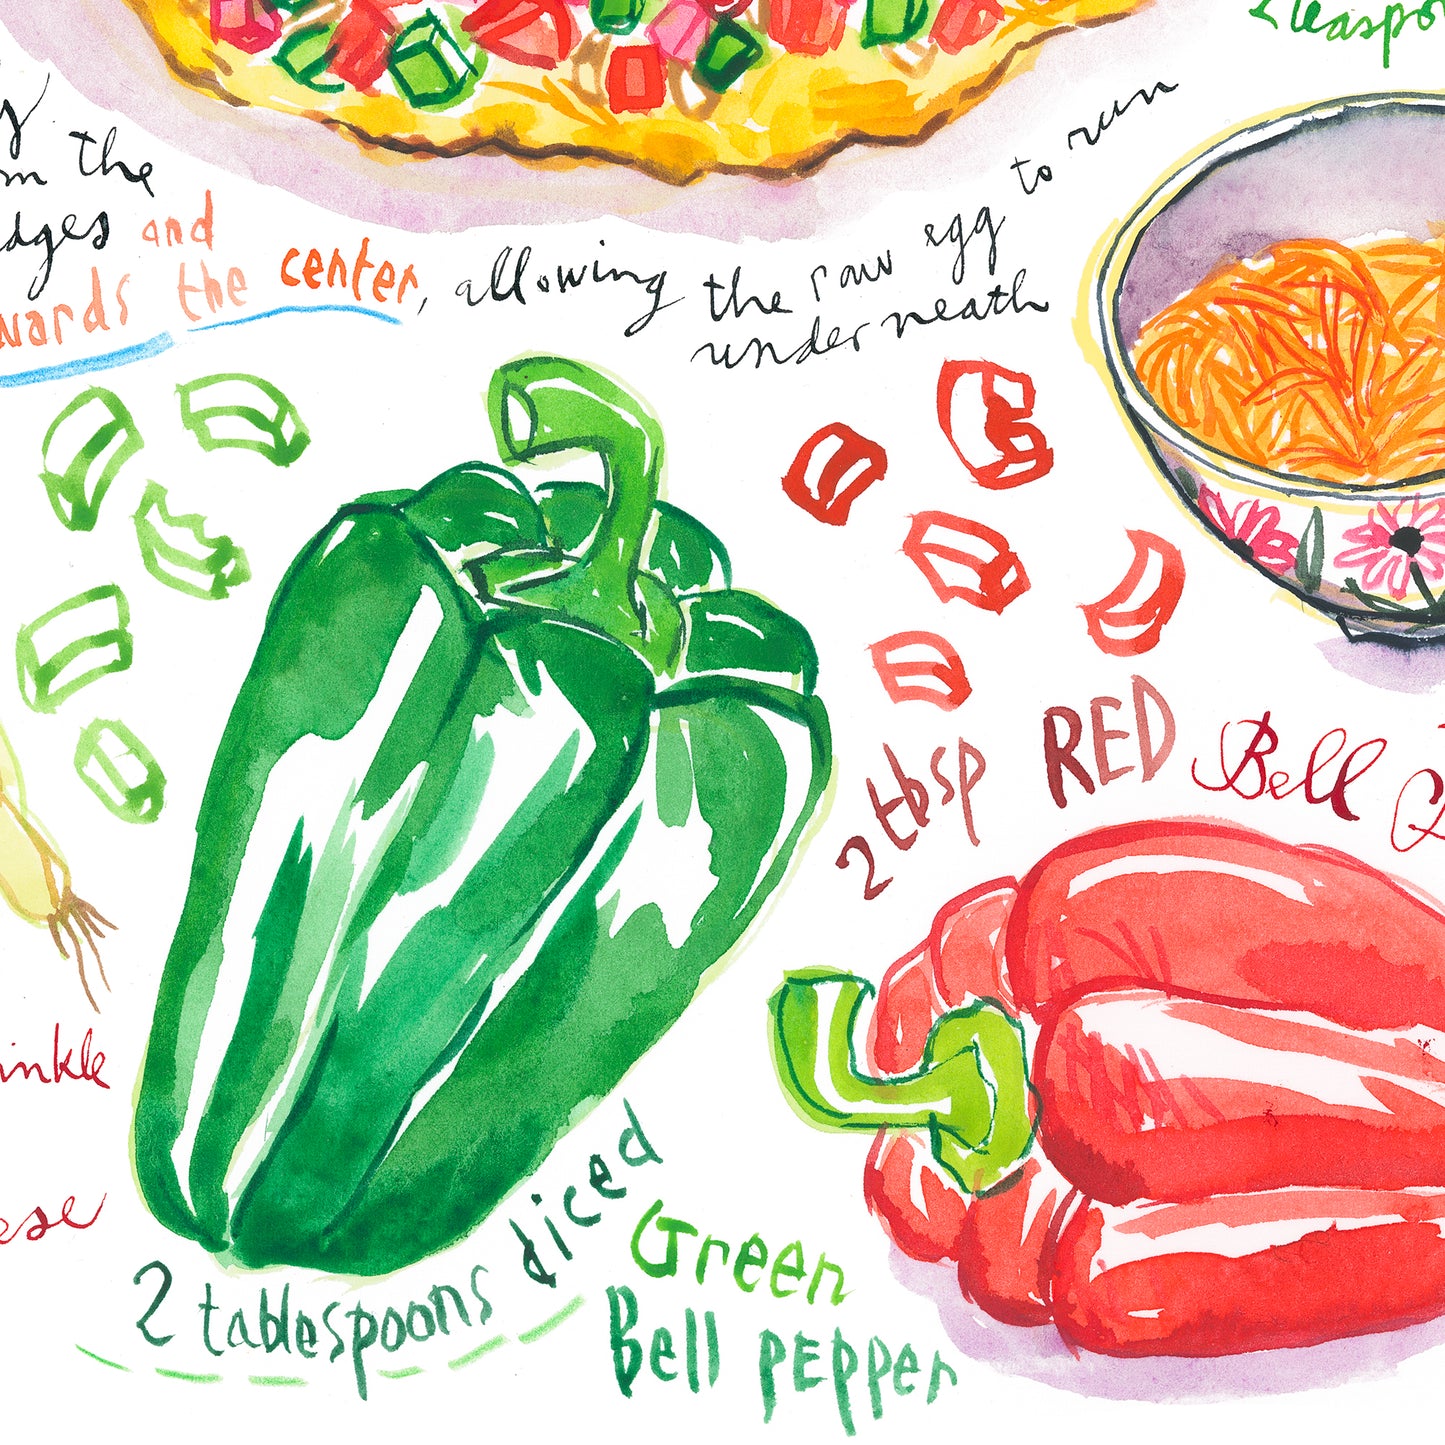 2 teaspo
y
m the
edges and
wards the center, allowing the raw egg to run
underneath
2 tbsp RED Bell P
inkle
ese
2 tablespoons diced
Green
Bell pepper